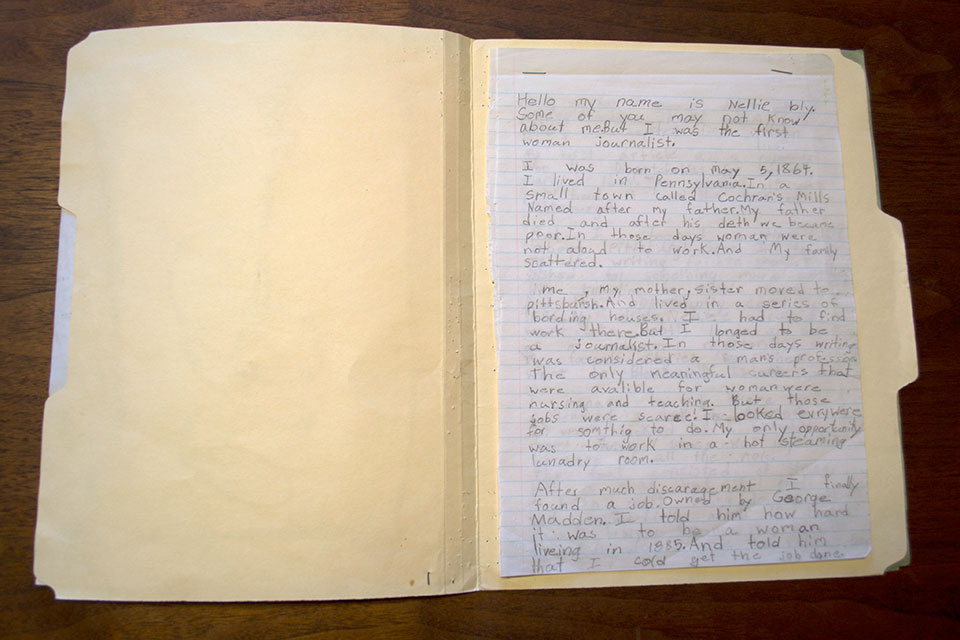 Hello my name is Nellie bly.
Some of you may not know
about me.But I was the first
woman journalist.
I was born on may 5, 1864.
I lived in Pennsylvania.In a
small town called Cochran's Mills
Named after my father.My father
died and after his deth we became
poor.In those days woman were
not aloud to work.And My family
scattered.
me , my mother, sister moved to
pittsburgh.And lived in a series of
bording houses. I had to find
work there.But I longed to be
a journalist. In those days writing
was considered a man's
The only meaningful careers that
were avalible for woman were
nursing and teaching. But those
jobs were scarce! I looked evrywere
for somthig to do. My only opportunity
was to work in a hot steaming
lunadry room.
After much discaregement I finally
found a job.Owned by George
Madden. I told him how hard
it was to be a woman
liveing in 1885.And told him
that I cold get the job done